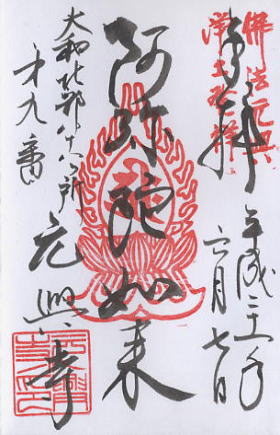 佛法元興
浄土発祥
奉拝
平成二十一年
六月七日
阿弥陀如来
大和北部八十八ヶ所
才九番
元興寺